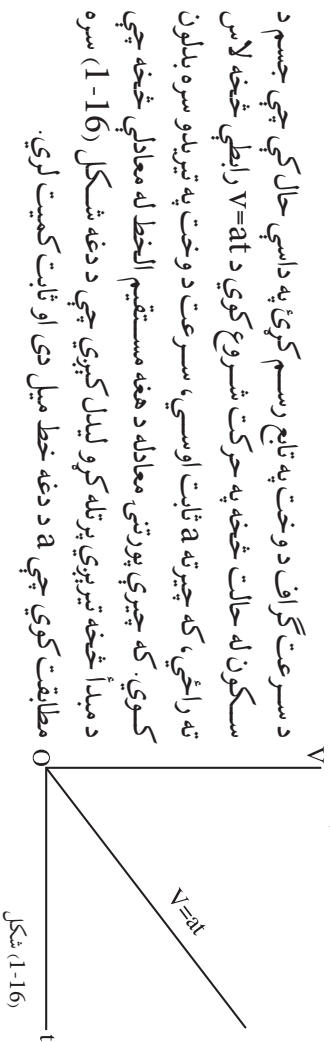 د سرعت گراف د وخت په تابع رسم کړئ په داسې حال کې چې جسم د
سکون له حالت څخه په حرکت شروع کوي د V=at رابطې څخه لاس
ته راځي، که چېرته a ثابت اوسي، سرعت د وخت په تېرېدو سره بدلون
کوي. که چېرې پورتنۍ معادله د هغه مستقيم الخط له معادلې څخه چې
د مبدأ څخه تېرېږي پرتله کړو ليدل کېږي چې د دغه شکل (1-16) سره
مطابقت کوي چې a د دغه خط ميل دی او ثابت کميت لري.
V
V=at
O
t
(1-16) شکل